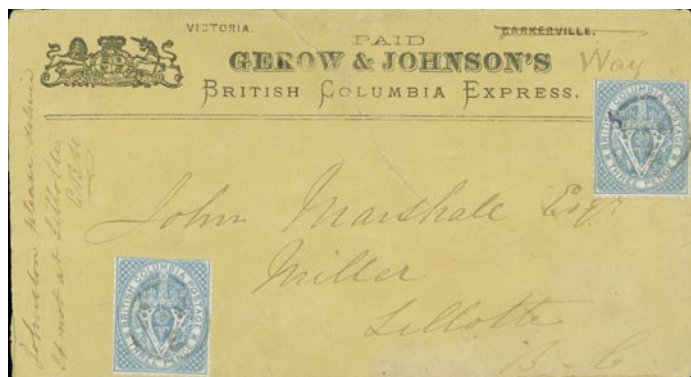 VICTORIA.
BARKERVILLE.
PAID
GEROW & JOHNSON'S
Way
BRITISH COLUMBIA EXPRESS.
BRITISH COLUMBIA POSTAGE
THREE PENCE
John Marshall Esqr
Miller
Lillotte
B-C
BRITISH COLUMBIA POSTAGE
THREE PENCE
Johnston please deliver
If not at Lillotte